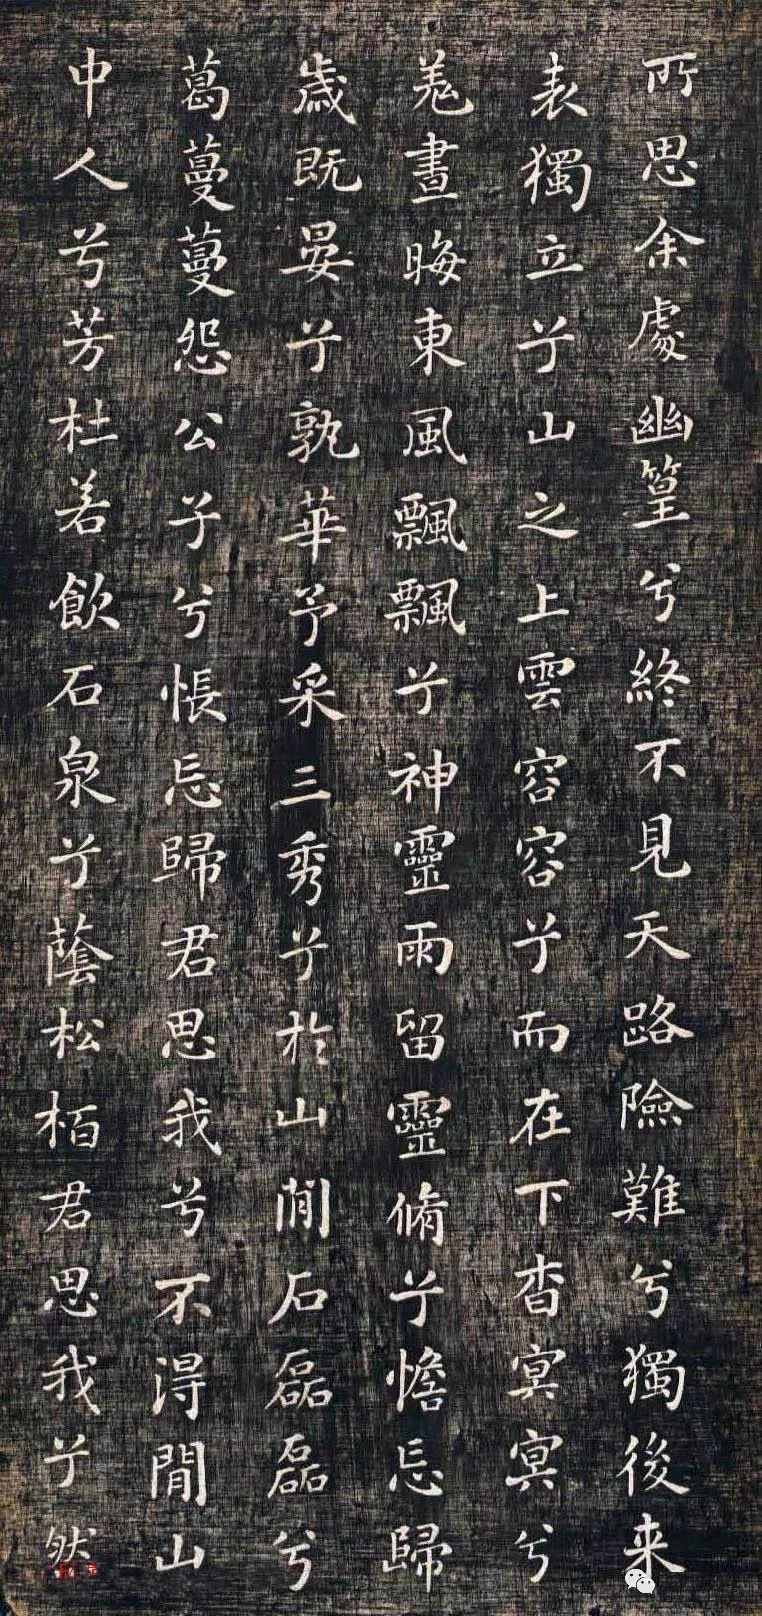 所思余處幽篁兮終不見天路險難兮獨後来
表獨立兮山之上雲容容兮而在下杳冥冥兮
羌晝晦東風飄飄兮神靈雨留靈脩兮憺忘歸
歲既晏兮孰華予采三秀兮於山閒石磊磊兮
葛蔓蔓怨公子兮悵忘歸君思我兮不得閒山
中人兮芳杜若飲石泉兮蔭松柏君思我兮然